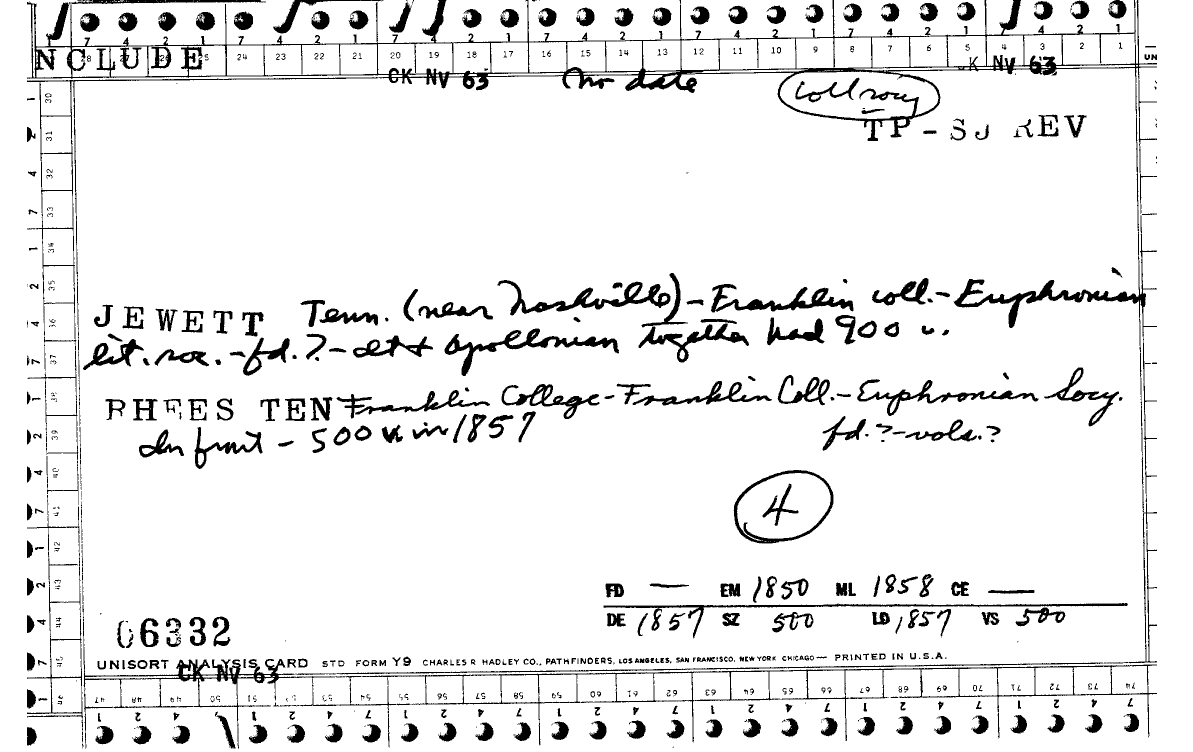 7 4 2 1 7 4 2 1 7 4 2 1 7 4 2 1 7 4 2 1 7 4 2 1 7 4 2 1
24 23 22 21 20 19 18 17 16 15 14 13 12 11 10 9 8 7 6 5 4 3 2 1
INCLUDE
CK NV 63 No date CK NV 63
coll socy
TP - SJ REV
JEWETT Tenn. (near Nashville) - Franklin coll. - Euphronian
lit. soc. - fd. ? - It & Apollonian together had 900 v.
RHEES TEN Franklin College - Franklin Coll. - Euphronian Socy.
In fruit - 500 v. in 1857 fd. ? - vols. ?
4
FD — EM 1850 ML 1858 CE —
DE 1857 SZ 500 LD 1857 VS 500
06332
UNISORT ANALYSIS CARD STD FORM Y9 CHARLES R HADLEY CO., PATHFINDERS, LOS ANGELES, SAN FRANCISCO, NEW YORK CHICAGO — PRINTED IN U.S.A.
CK NV 63
47 48 49 50 51 52 53 54 55 56 57 58 59 60 61 62 63 64 65 66 67 68 69 70 71 72 73 74
1 2 4 7 1 2 4 7 1 2 4 7 1 2 4 7 1 2 4 7 1 2 4 7